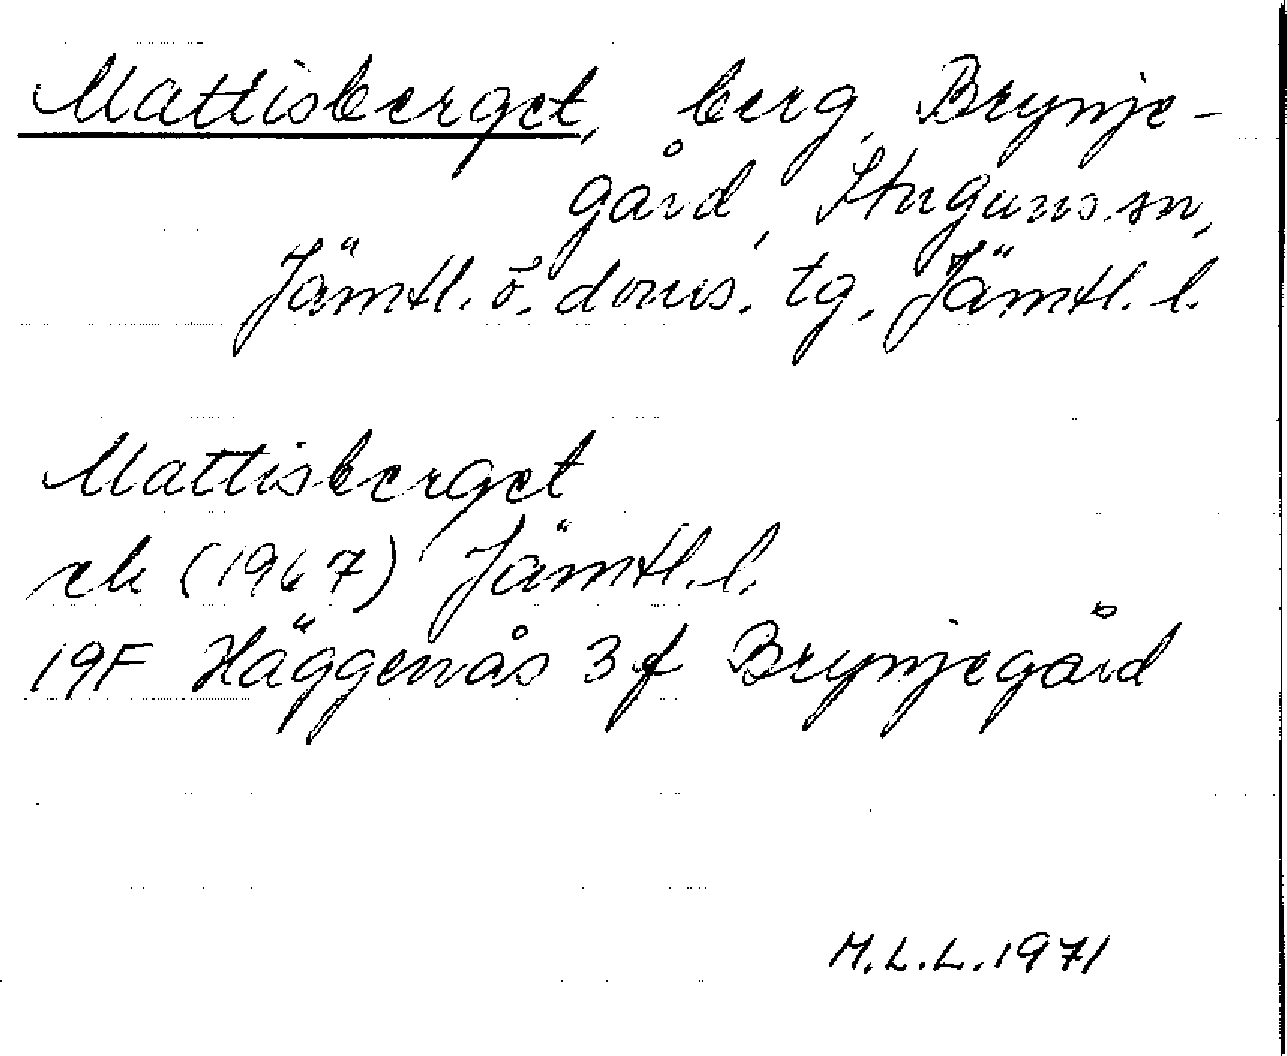 Mattisberget, berg, Brynje-
gård, Stuguns sn,
Jämtl. ö. doms. tg, Jämtl. l.
Mattisberget
ek (1967) Jämtl. l.
19F Häggenås 3f Brynjegård
M.L.L. 1971